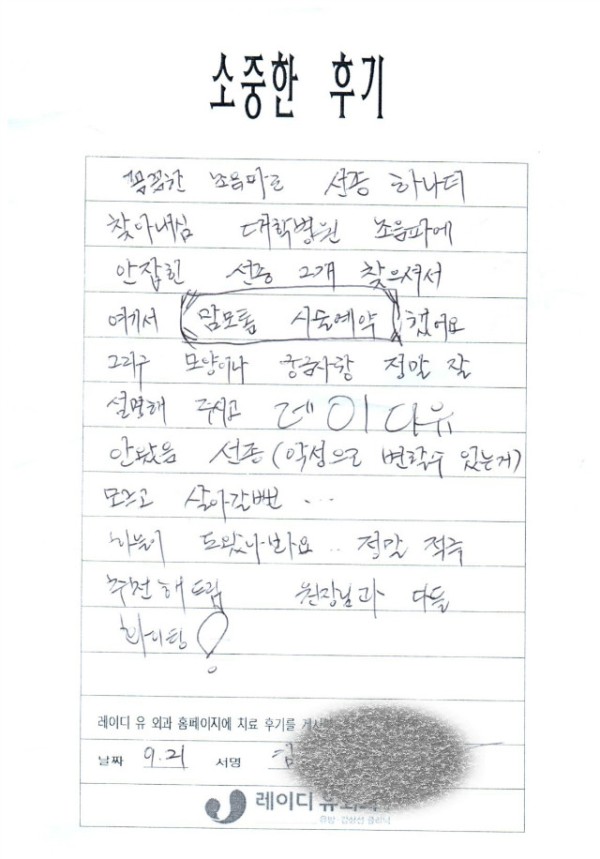 소중한 후기
꼼꼼한 초음파로 선종 하나더
찾아내심 대학병원 초음파에
안잡힌 선종 2개 찾으셔서
여기서 맘모톰 시술예약 했어요
그리구 모양이나 궁금사항 정말 잘
설명해 주시고 레이디유
안왔음 선종(악성으로 변할수 있는거)
모르고 살아갈뻔...
하늘이 도왔나봐요.. 정말 적극
추천해드림 원장님과 다들
화이팅!
레이디 유 외과 홈페이지에 치료 후기를
날짜 9.21 서명
레이디 유외과